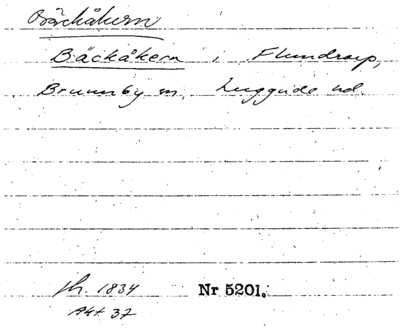 Bäckåkern
Bäckåkern i Flundrarp,
Brunnby sn, Luggude hd.
fh. 1834 Nr 5201.
Akt 37